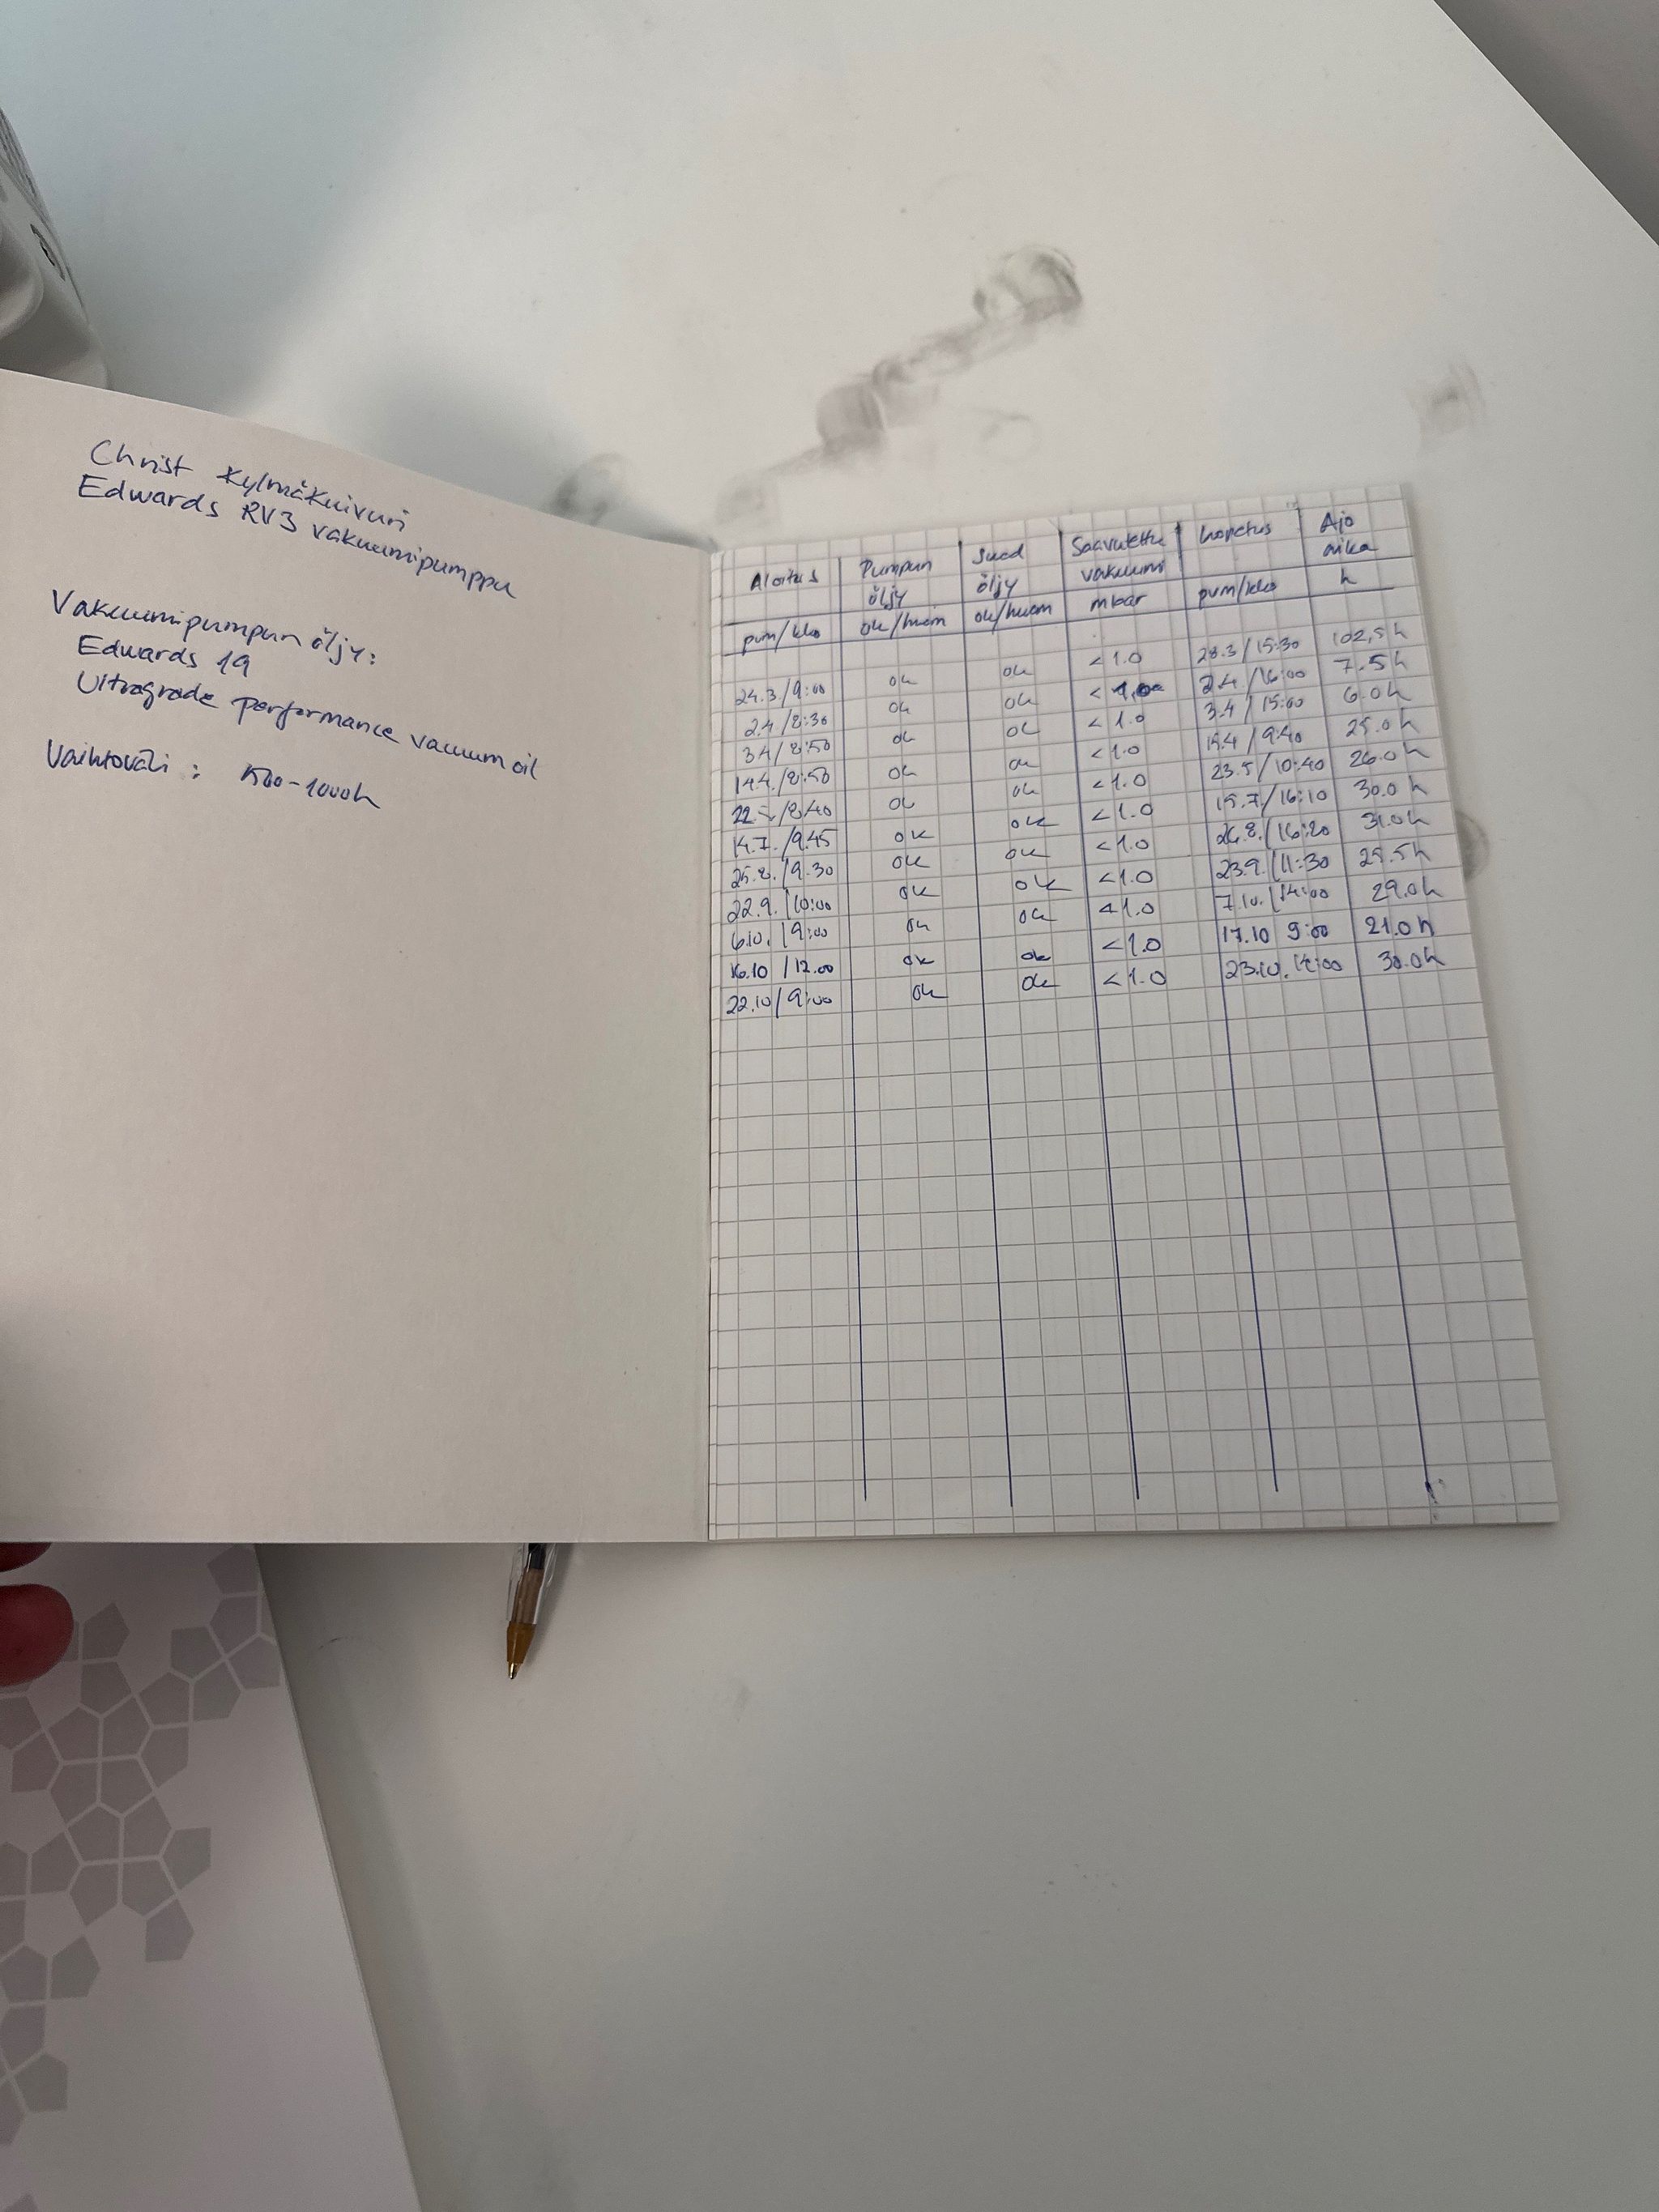 Christ Kylmäkuivuri
Edwards RV3 vakuumipumppu
Vakuumipumpun öljy:
Edwards 19
Ultragrade performance vacuum oil
Vaihtoväli: 500-1000h
Aloitus Pumpun öljy Suod öljy Saavutettu vakuumi Lopetus Ajo aika
pvm/klo ok/huom ok/huom mbar pvm/klo h
24.3/9:00 ok ok <1.0 28.3/15:30 102,5h
2.4/8:30 ok ok < 1,0 2.4/16:00 7.5h
3.4/8:50 ok ok <1.0 3.4/15:00 6.0h
14.4./8:50 ok ok <1.0 15.4/9:40 25.0h
22.5/8:40 ok ok <1.0 23.5/10:40 26.0h
14.7./9.45 ok ok <1.0 15.7/16:10 30.0h
25.8./9.30 ok ok <1.0 26.8./16:20 31.0h
22.9./10:00 ok ok <1.0 23.9./11:30 25.5h
6.10./9:00 ok ok <1.0 7.10./14:00 29.0h
16.10/12.00 ok ok <1.0 17.10 9:00 21.0h
22.10/9:00 ok ok <1.0 23.10. 30.0h